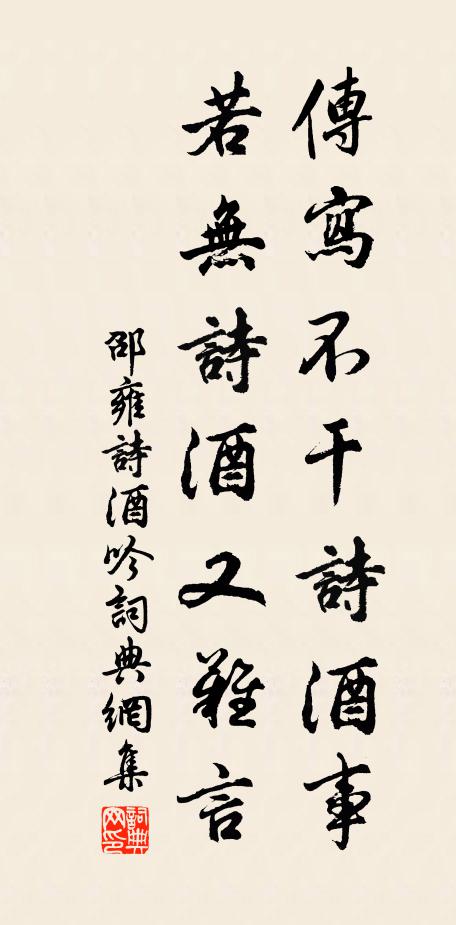 傳寫不干詩酒事
若無詩酒又難言
邵雍詩酒吟詞典網集
詞典
网印